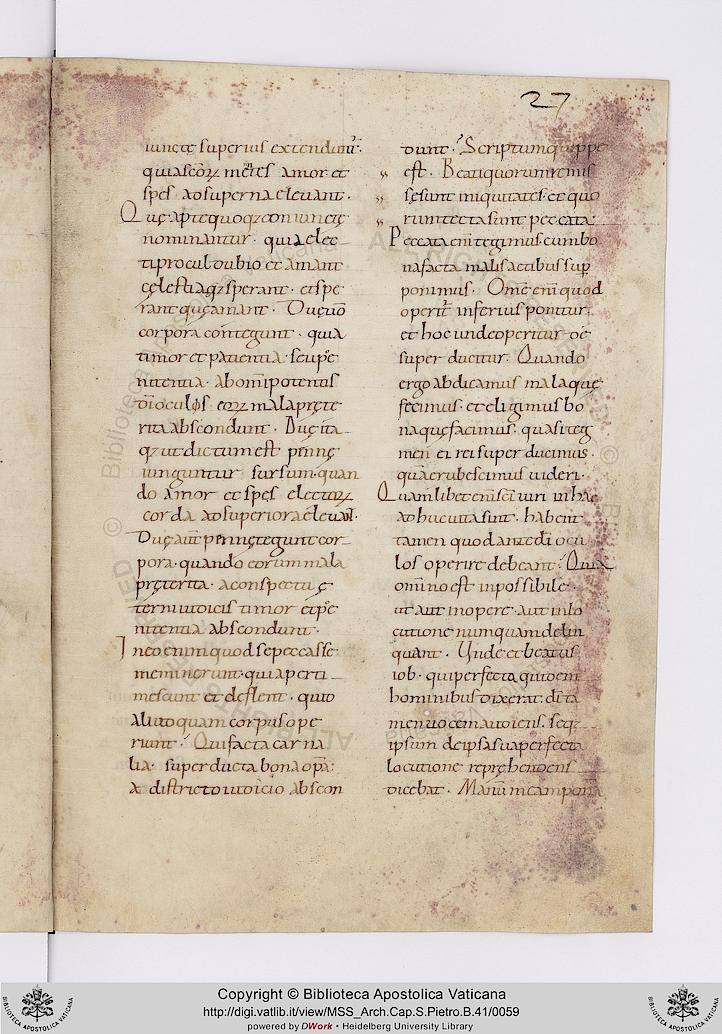 27
iunctę superius extendunt̃.
quia s̃corʒ mentes amor et
spes ad superna eleuant.
Quę apte quoqʒ coniunctę
nominantur. quia elec
ti procul dubio et amant
cęlestia qʒ sperant. et spe
rant quę amant. Duę uõ
corpora contegunt. quia
timor et patientia seu pę
nitentia. ab omĩpotentis
d̃i oculis eorʒ mala pręte
rita abscondunt. Duę ita
qʒ ut dictum est pennę
iunguntur sursum. quan
do amor et spes electorʒ
corda ad superiora eleuat.
Duę aut̃ pennę tegunt cor
pora. quando eorum mala
pręterita. a conspectu ę
terni iudicis timor et pę
nitentia abscondunt.
In eo enim quod se peccasse
meminerunt. qui a perti
mescunt et deflent. quid
aliud quam corpus ope
riunt. Qui facta carna
lia. superducta bona opa:
a districto iudicio abscon
dunt. Scriptum quippe
est. Beati quorum remis
sę sunt iniquitates. et quo
rum tecta sunt peccata:
Peccata eni tegimus. cum bo
na facta malis actibus sup
ponimus. Omẽ eni quod
operit̃ inferius ponitur.
et hoc unde operitur de
super ducitur. Quando
ergo abdicamus mala quę
fecimus. et eligimus bo
na quę facimus. quasi teg
men ei rei superducimus.
quã erubescimus uideri.
Quamlibet eni s̃ci uiri in hac
adhuc uita sint. habent
tamen quod ante d̃i ocu
los operire debeant. Quia
omĩno est inpossibile.
ut aut in opere. aut in lo
cutione numquam delin
quant. Unde et beatus
iob. qui perfecta quidem
hominibus dixerat. di ta
men uocem audiens. seqʒ
ipsum de ipsa sua perfecta
locutione reprehendens
dicebat. Manũ meam ponã
Copyright © Biblioteca Apostolica Vaticana
http://digi.vatlib.it/view/MSS_Arch.Cap.S.Pietro.B.41/0059
powered by DWork • Heidelberg University Library